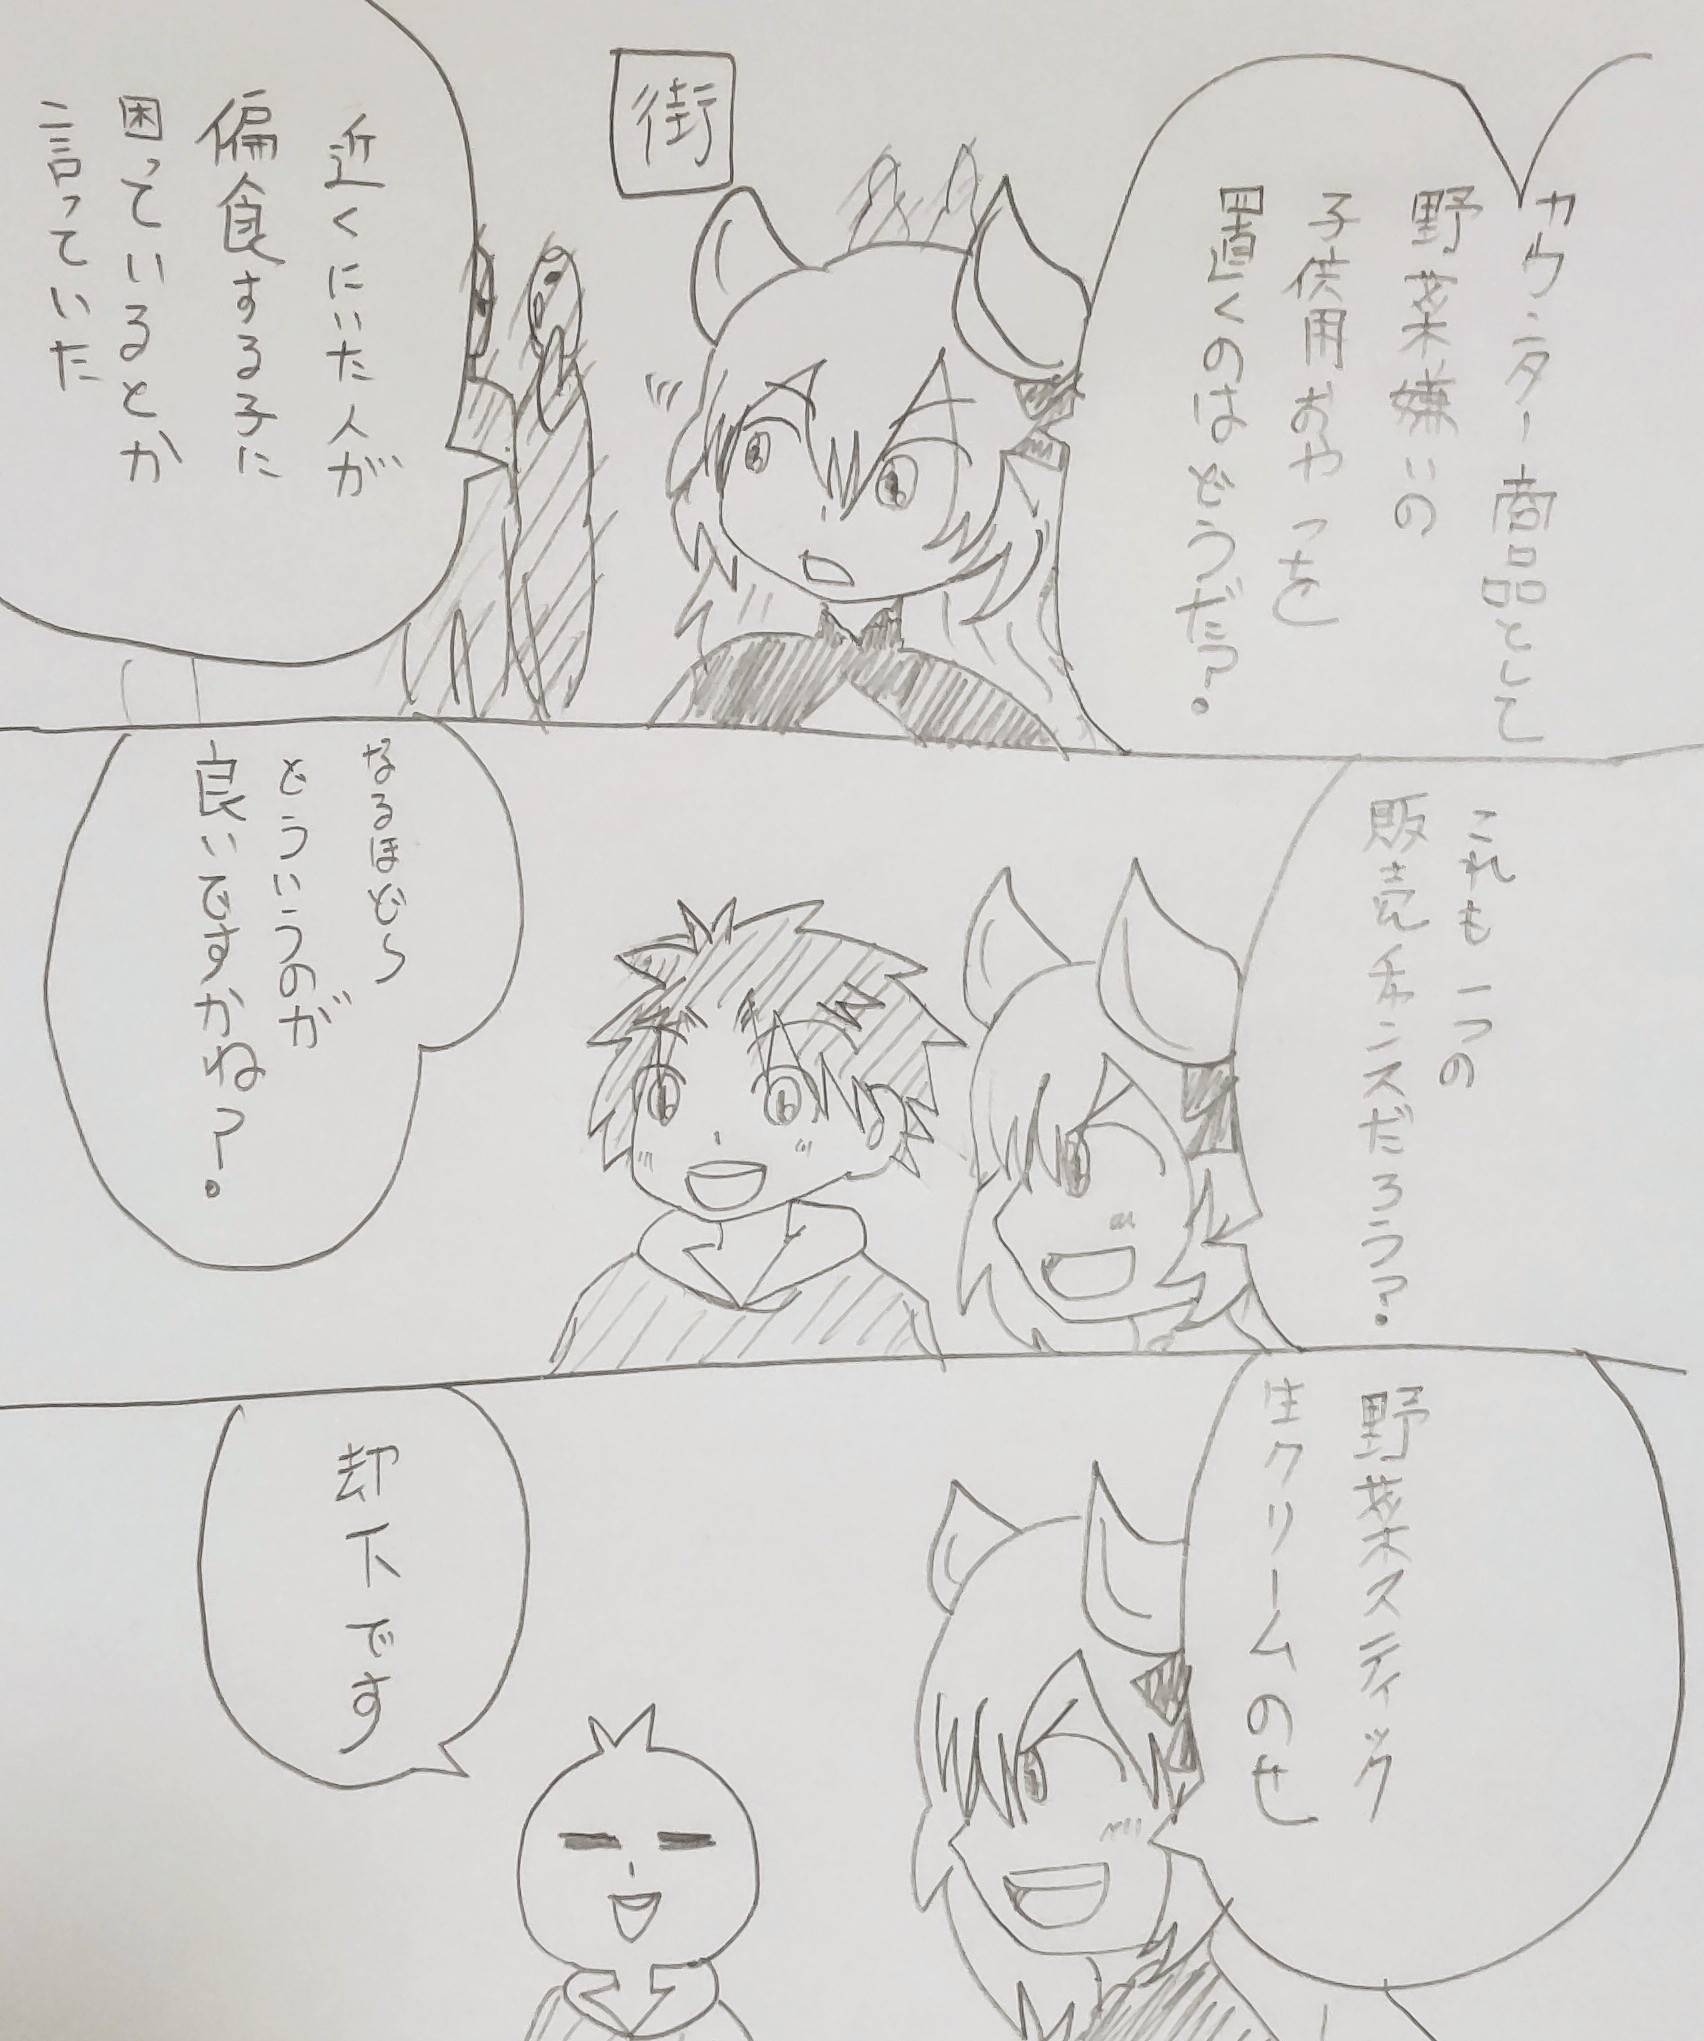 カウンター商品として
野菜嫌いの
子供用おやつを
置くのはどうだ？
街
近くにいた人が
偏食する子に
困っているとか
言っていた
これも一つの
販売チャンスだろう？
なるほど～
どういうのが
良いですかね？
野菜スティック
生クリームのせ
却下です